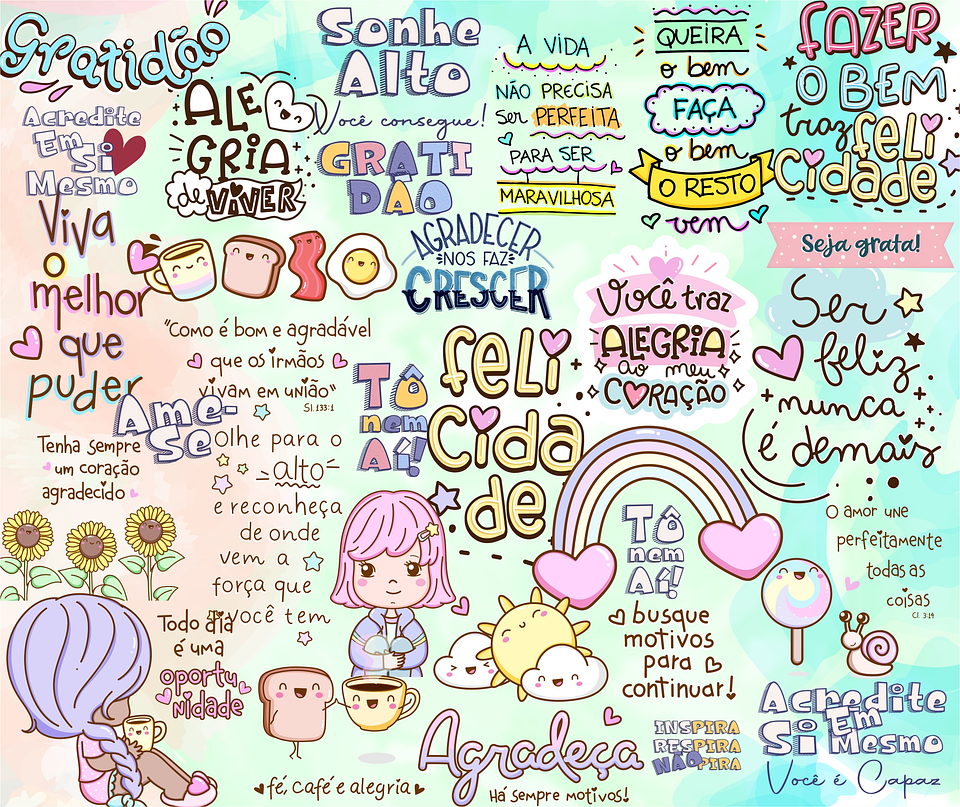 Gratidão
Acredite
Em
Si
Mesmo
ALE
GRIA
de VIVER
Sonhe
Alto
Você consegue!
GRATI
DÃO
A VIDA
NÃO PRECISA
Ser PERFEITA
PARA SER
MARAVILHOSA
QUEIRA
o bem
FAÇA
o bem
O RESTO
vem
FAZER
O BEM
traz feli
Cidade
Seja grata!
Viva
o
melhor
que
puder
AGRADECER
NOS FAZ
CRESCER
"Como é bom e agradável
que os irmãos
vivam em união"
Sl. 133:1
Você traz
ALEGRIA
ao meu
CORAÇÃO
Ser
feliz
nunca
é demais
Ame-
se
TÔ
nem
Aí!
feli
Cida
de
Tenha sempre
um coração
agradecido
Olhe para o
alto
e reconheça
de onde
vem a
força que
você tem
TÔ
nem
Aí!
O amor une
perfeitamente
todas as
coisas
Cl. 3:14
Todo dia
é uma
oportu
nidade
busque
motivos
para
continuar!
fé, café e alegria
Agradeça
Há sempre motivos!
INSPIRA
RESPIRA
NÃO PIRA
Acredite
Em
Si Mesmo
Você é Capaz